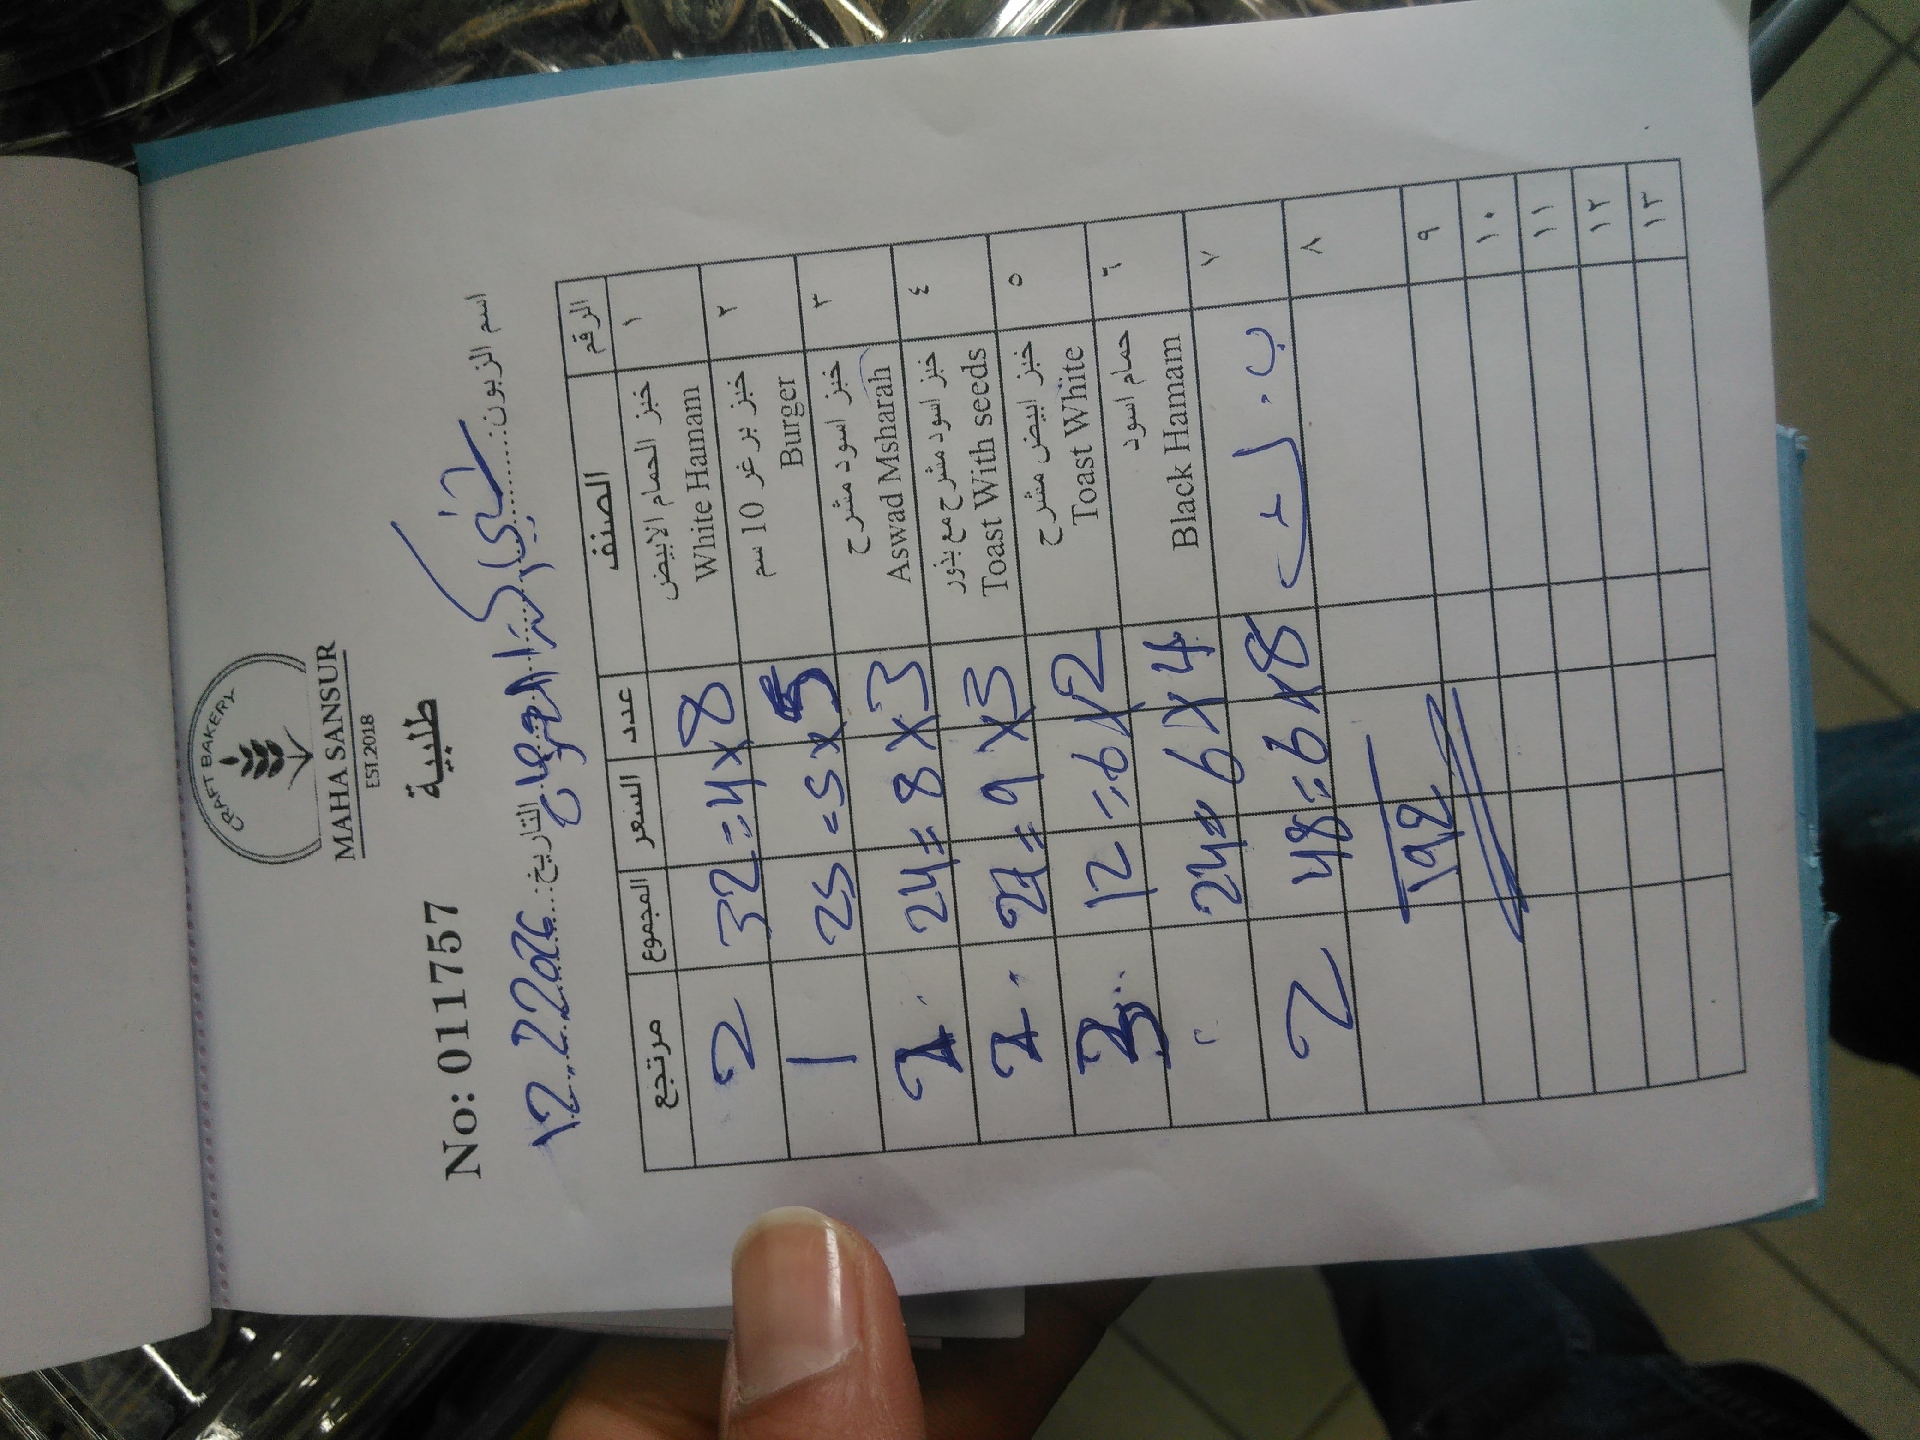 CRAFT BAKERY
MAHA SANSUR
EST.2018
طلبية
No: 011757
اسم الزبون: التاريخ: 12.2.2026
الرقم الصنف عدد السعر المجموع مرتجع
١ خبز الحمام الابيض White Hamam 8 × 4 = 32 2
٢ خبز برغر 10 سم Burger 5 × 5 = 25 1
٣ خبز اسود مشرح Aswad Msharah 3 × 8 = 24 2
٤ خبز اسود مشرح مع بذور Toast With seeds 3 × 9 = 27 2
٥ خبز ابيض مشرح Toast White 2 × 6 = 12 3
٦ حمام اسود Black Hamam 4 × 6 = 24
٧ 8 × 6 = 48 2
٨ 192
٩
١٠
١١
١٢
١٣